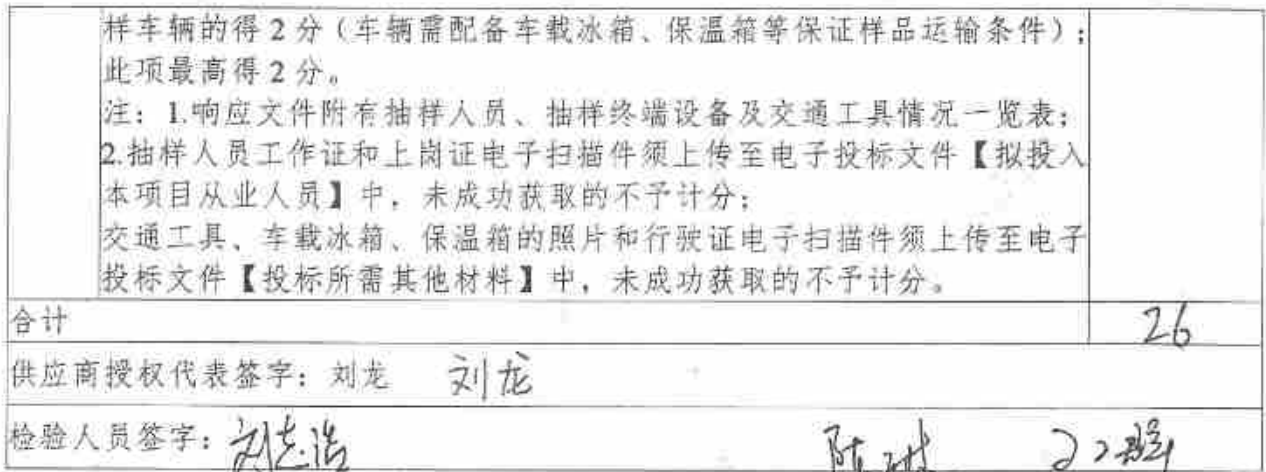 样车辆的得2分（车辆需配备车载冰箱、保温箱等保证样品运输条件）；
此项最高得2分。
注：1.响应文件附有抽样人员、抽样终端设备及交通工具情况一览表；
2.抽样人员工作证和上岗证电子扫描件须上传至电子投标文件【拟投入
本项目从业人员】中，未成功获取的不予计分；
交通工具、车载冰箱、保温箱的照片和行驶证电子扫描件须上传至电子
投标文件【投标所需其他材料】中，未成功获取的不予计分。
合计 26
供应商授权代表签字：刘龙 刘龙
检验人员签字：刘志浩